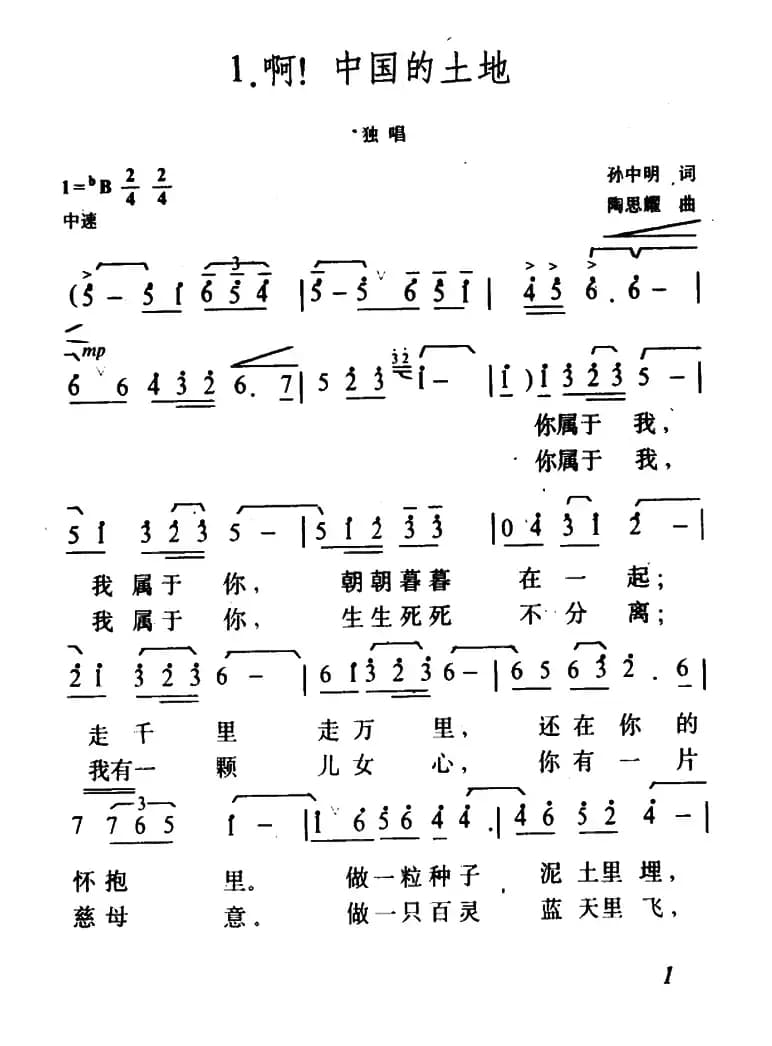 1.啊! 中国的土地
独唱
1=bB 2/4 2/4
孙中明 词
中速
陶思耀 曲
(5 - 5 i 6 5 4 | 5 - 5 6 5 i | 4 5 6. 6 - |
mp
6 6 4 3 2 6. 7 | 5 2 3 3 2 i - | i ) i 3 2 3 5 - |
你属于 我,
你属于 我,
5 i 3 2 3 5 - | 5 i 2 3 3 | 0 4 3 i 2 - |
我 属于 你, 朝朝暮暮 在 一 起;
我 属于 你, 生生死死 不 分 离;
2 i 3 2 3 6 - | 6 i 3 2 3 6 - | 6 5 6 3 2. 6 |
走 千 里 走 万 里, 还 在 你 的
我有一 颗 儿 女 心, 你 有 一 片
7 7 6 5 i - | i 6 5 6 4 4. | 4 6 5 2 4 - |
3
怀 抱 里。 做 一 粒 种 子 , 泥 土 里 埋,
慈 母 意. 做 一 只 百 灵 蓝 天 里 飞,
1